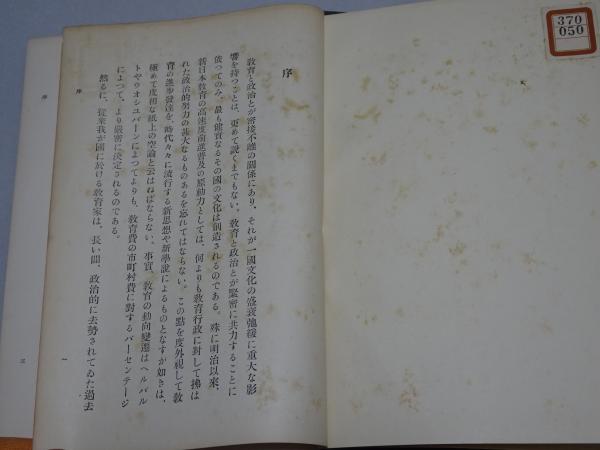 370
050
序
教育と政治とが密接不離の關係にあり、それが一國文化の盛衰弛緩に重大な影
響を持つことは、更めて説くまでもない。教育と政治とが緊密に共力することに
依つてのみ、最も健實なるその國の文化は創造されるのである。殊に明治以來、
新日本教育の高速度前進普及の原動力としては、何よりも教育行政に對して拂は
れた政治的努力の甚大なるものあるを忘れてはならない。この點を度外視して教
育の進歩發達を、時代々々に流行する新思想や新學説によるものとなすが如きは、
極めて皮相な紙上の空論と云はねばならない。事實、教育の動向變遷はヘルバル
トやウオシユバーンによつてよりも、教育費の市町村費に對するパーセンテージ
によつて、より嚴密に決定されるのである。
然るに、從來我が國に於ける教育家は、長い間、政治的に去勢されてゐた過去
序
一
序
三